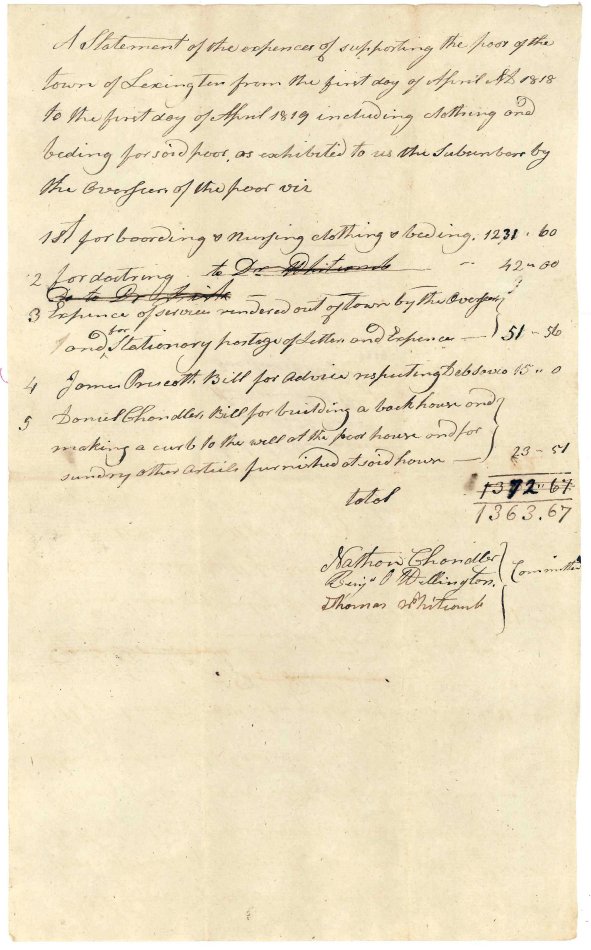 A Statement of the expences of supporting the poor of the
town of Lexington from the first day of April AD 1818
to the first day of April 1819 including clothing and
beding for said poor, as exhibited to us the Subscribers by
the Overseers of the poor viz
1st for boarding & Nursing clothing & beding. 1231 . 60
2 for doctring to Dr Whitcomb " 42 = 00
Do to Dr
3 Expence of services rendered out of town by the Overseers
and for Stationary postage of Letters and Expences — 51 - 56
4 James Prescotts Bill for Advice respecting 15 " 0
5 Daniel Chandlers Bill for building a back house and
making a curb to the well at the poor house and for
sundry other Articls furnished at said house — 23 - 51
total 1372 " 67
1363.67
Nathan Chandler
Benjn O Wellington. Committee
Thomas Whitcomb